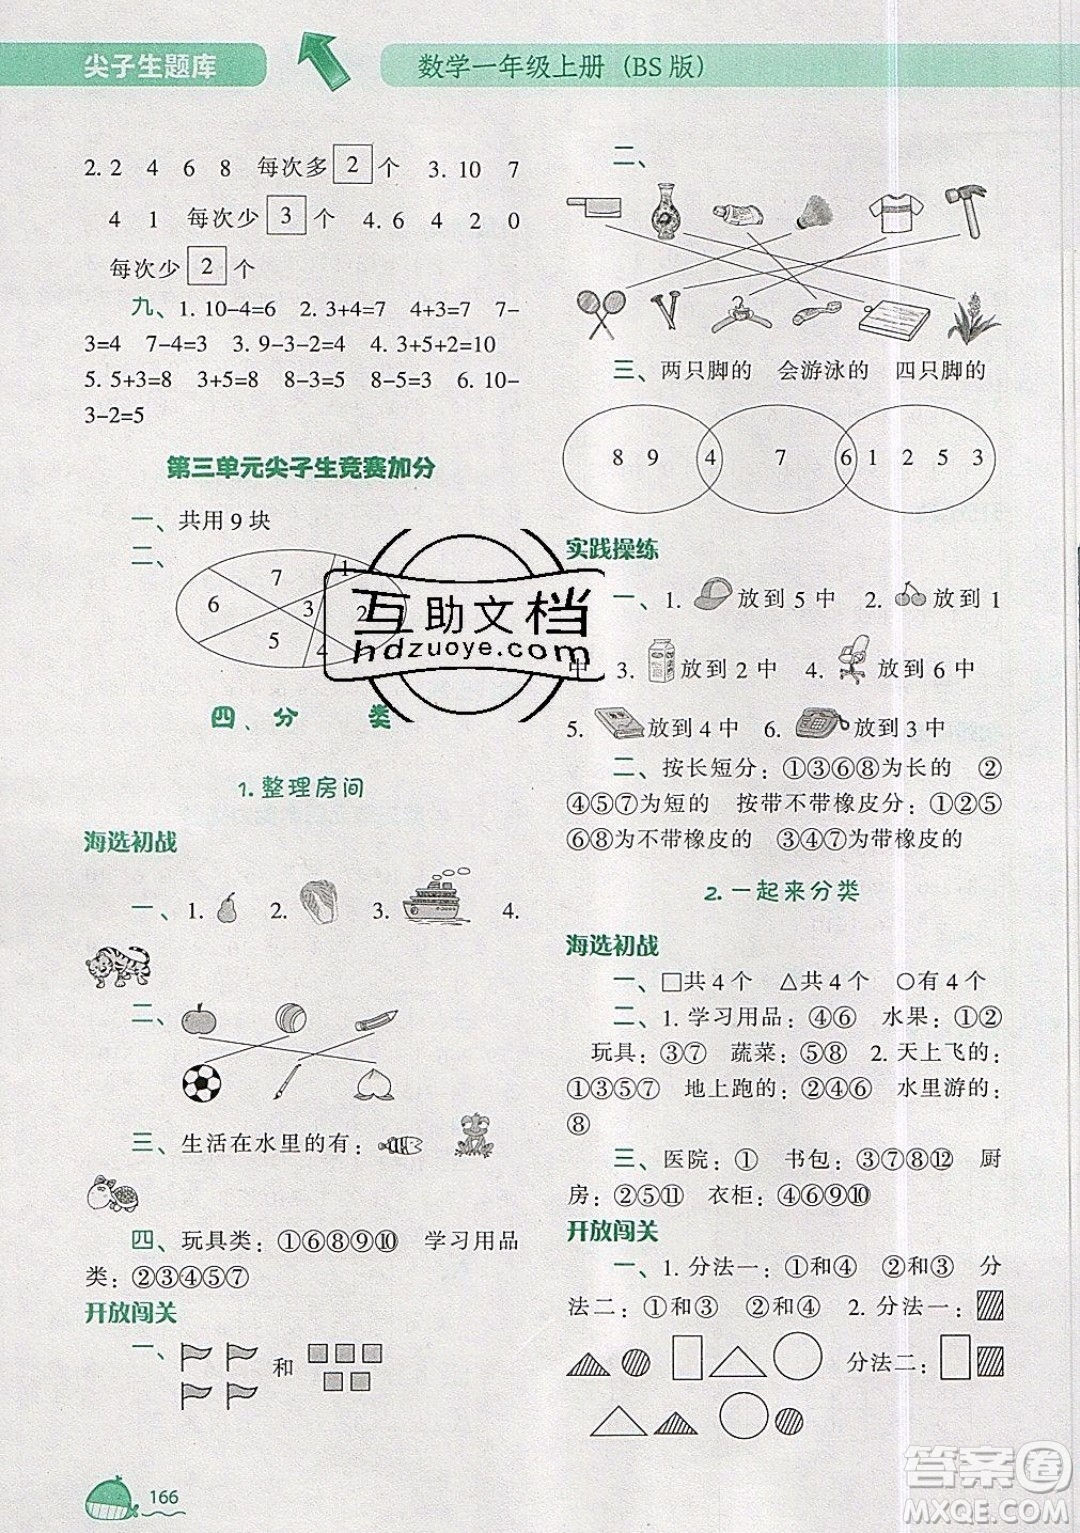 尖子生题库
数学一年级上册（BS版）
2. 2 4 6 8 每次多 2 个 3. 10 7
4 1 每次少 3 个 4. 6 4 2 0
每次少 2 个
九、1. 10-4=6 2. 3+4=7 4+3=7 7-
3=4 7-4=3 3. 9-3-2=4 4. 3+5+2=10
5. 5+3=8 3+5=8 8-3=5 8-5=3 6. 10-
3-2=5
第三单元尖子生竞赛加分
一、共用9块
二、
7 1
6 3 2
5 4
四、分 类
1. 整理房间
海选初战
一、1. 2. 3. 4.
二、
三、生活在水里的有：
四、玩具类：①⑥⑧⑨⑩ 学习用品
类：②③④⑤⑦
开放闯关
一、 和
166
二、
三、两只脚的 会游泳的 四只脚的
8 9 4 7 6 1 2 5 3
实践操练
一、1. 放到5中 2. 放到1
中 3. 放到2中 4. 放到6中
5. 放到4中 6. 放到3中
二、按长短分：①③⑥⑧为长的 ②
④⑤⑦为短的 按带不带橡皮分：①②⑤
⑥⑧为不带橡皮的 ③④⑦为带橡皮的
2. 一起来分类
海选初战
一、□共4个 △共4个 ○有4个
二、1. 学习用品：④⑥ 水果：①②
玩具：③⑦ 蔬菜：⑤⑧ 2. 天上飞的：
①③⑤⑦ 地上跑的：②④⑥ 水里游的：
⑧
三、医院：① 书包：③⑦⑧⑫ 厨
房：②⑤⑪ 衣柜：④⑥⑨⑩
开放闯关
一、1. 分法一：①和④ ②和③ 分
法二：①和③ ②和④ 2. 分法一：
分法二：
互助文档
hdzuoye.com
答案圈
MXQE.COM